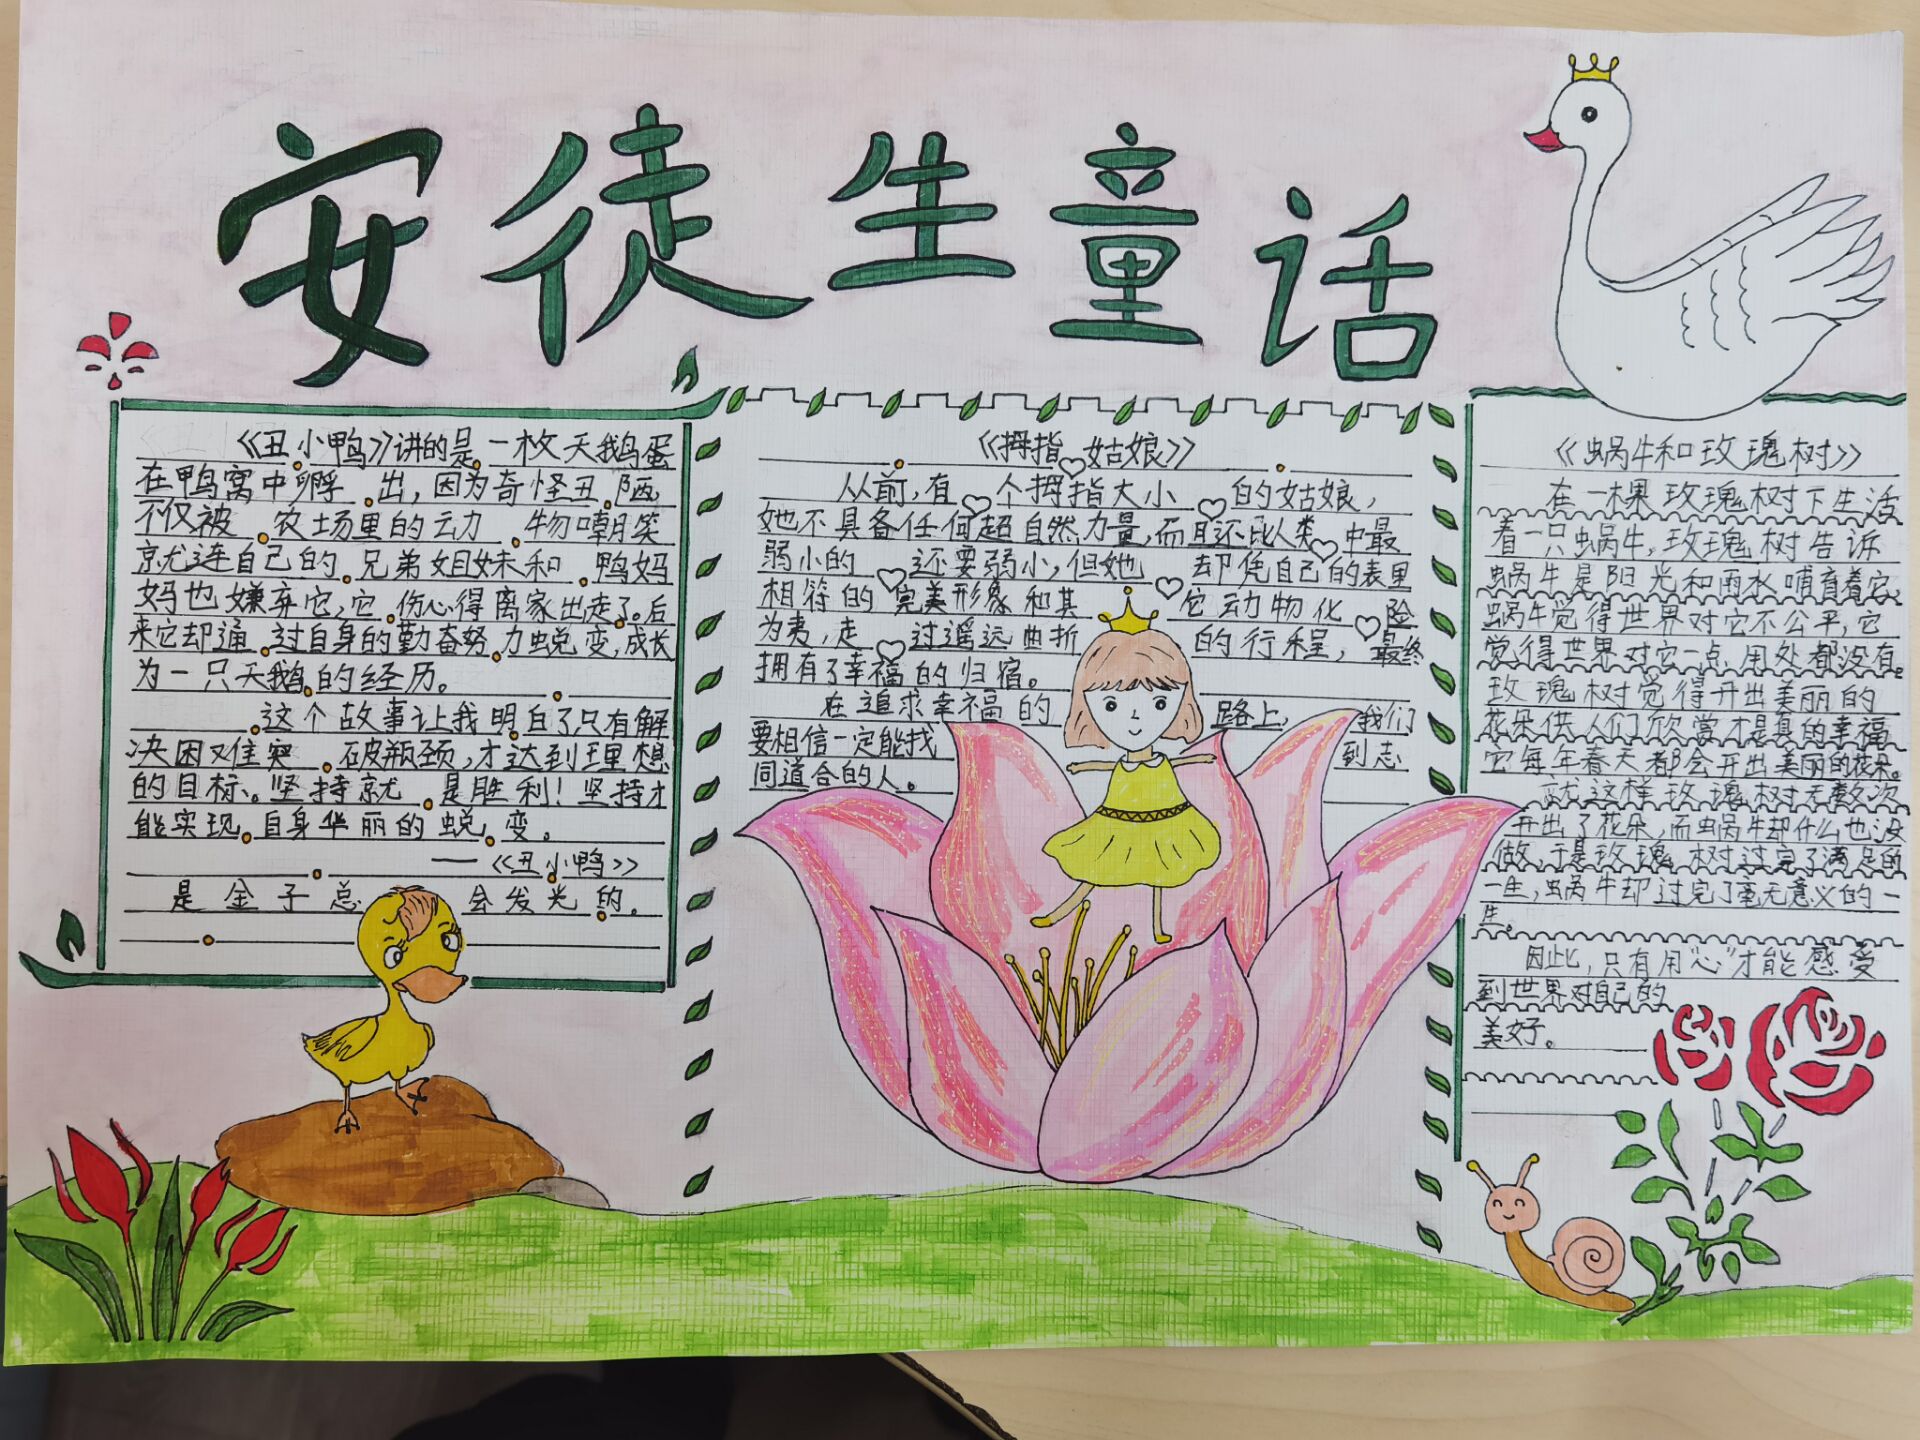 安徒生童话
《丑小鸭》讲的是一枚天鹅蛋
在鸭窝中孵出，因为奇怪丑陋
不仅被农场里的动物嘲笑
就连自己的兄弟姐妹和鸭妈
妈也嫌弃它，它伤心得离家出走了。后
来它却通过自身的勤奋努力蜕变，成长
为一只天鹅的经历。
这个故事让我明白了只有解
决困难突破瓶颈，才达到理想
的目标。坚持就是胜利！坚持才
能实现自身华丽的蜕变。
——《丑小鸭》
是金子总会发光的。
《拇指姑娘》
从前，有个拇指大小的姑娘，
她不具备任何超自然力量，而且还比人类中最
弱小的还要弱小，但她却凭自己的表里
相符的完美形象和其它动物化险
为夷，走过遥远曲折的行程，最终
拥有了幸福的归宿。
在追求幸福的路上，我们
要相信一定能找到志
同道合的人。
《蜗牛和玫瑰树》
在一棵玫瑰树下生活
着一只蜗牛，玫瑰树告诉
蜗牛是阳光和雨水哺育着它，
蜗牛觉得世界对它不公平，它
觉得世界对它一点用处都没有。
玫瑰树觉得开出美丽的
花朵供人们欣赏才是真的幸福
它每年春天都会开出美丽的花朵。
就这样玫瑰树无数次
开出了花朵，而蜗牛却什么也没
做，于是玫瑰树过完了满足的
一生，蜗牛却过完了毫无意义的一
生。
因此，只有用“心”才能感受
到世界对自己的
美好。